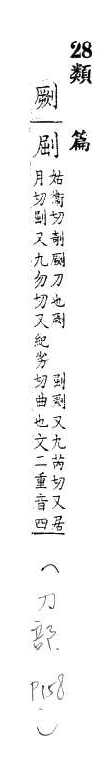 28 類篇
劂
姑衛切剞劂刀也 又九芮切又居
月切 又九勿切又紀劣切曲也文二重音四
(刀部 P158)